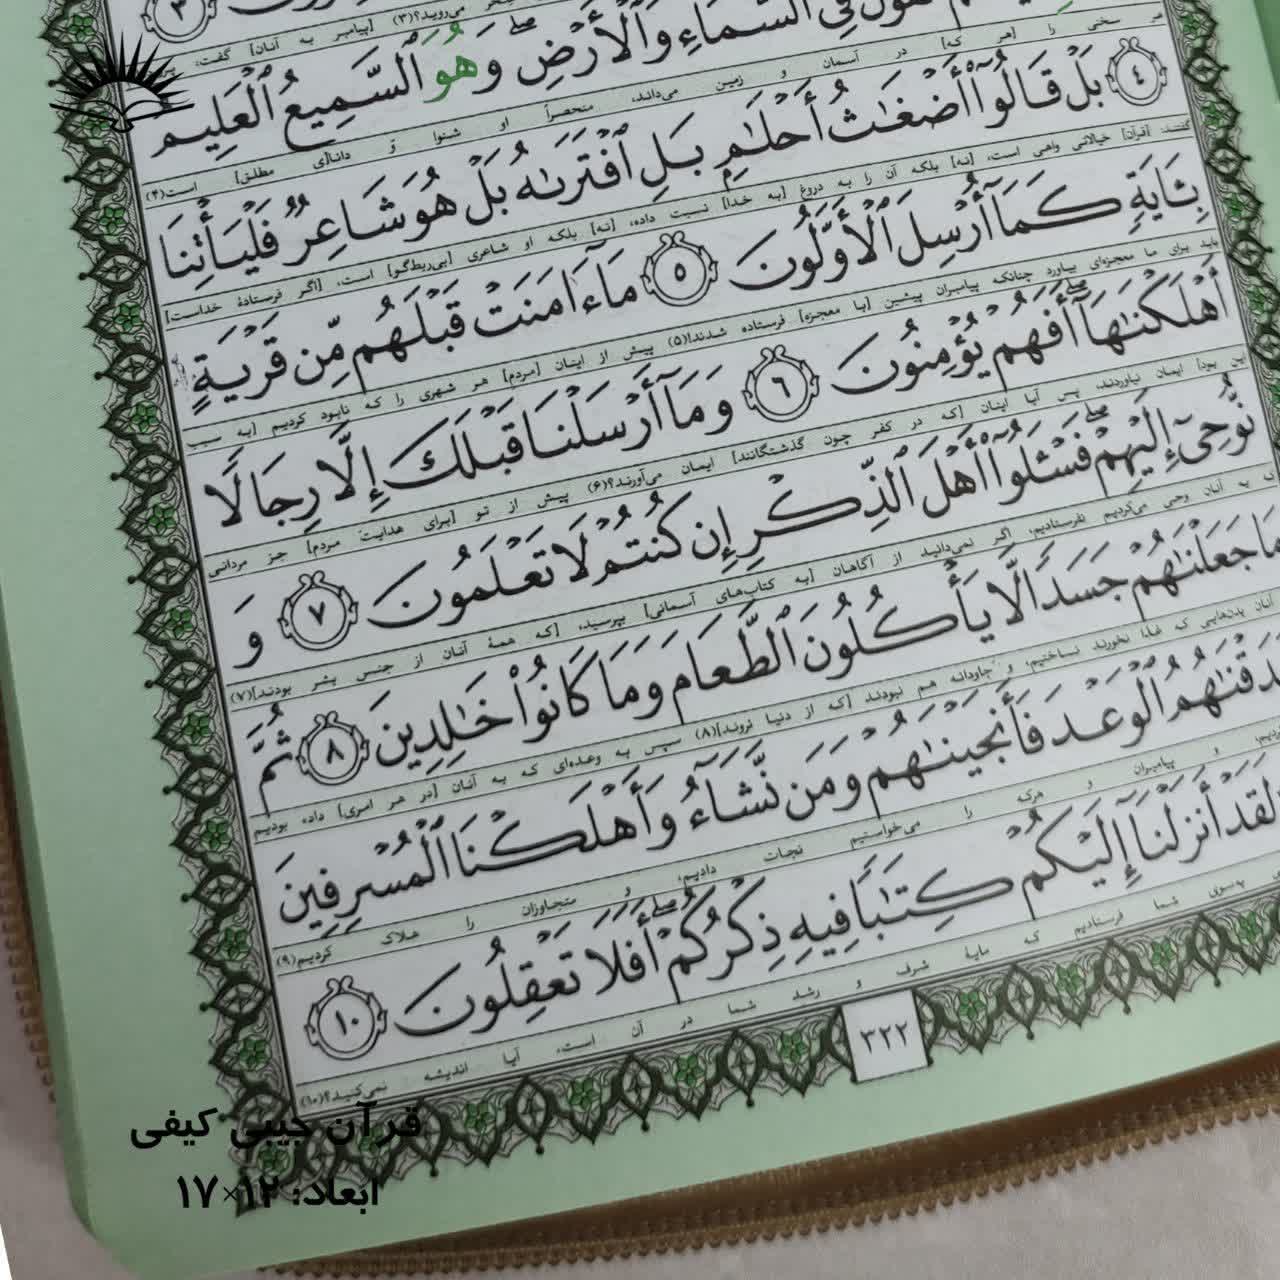 می‌روید؟(۳) [پیامبر به آنان] گفت:
ٱلسَّمَآءِ وَٱلْأَرْضِ ۖ وَهُوَ ٱلسَّمِيعُ ٱلْعَلِيمُ
هر سخنی را [هر که] در آسمان و زمین می‌داند، منحصراً او شنوا و دانا[ی مطلق] است(۴)
٤ بَلْ قَالُوٓا۟ أَضْغَـٰثُ أَحْلَـٰمٍۭ بَلِ ٱفْتَرَىٰهُ بَلْ هُوَ شَاعِرٌ فَلْيَأْتِنَا
گفتند: [قرآن] خیالاتی واهی است، [نه] بلکه آن را به دروغ [به خدا] نسبت داده، [نه] بلکه او شاعری [بی‌ربط‌گو] است، [اگر فرستادهٔ خداست]
بِـَٔايَةٍ كَمَآ أُرْسِلَ ٱلْأَوَّلُونَ ٥ مَآ ءَامَنَتْ قَبْلَهُم مِّن قَرْيَةٍ
باید برای ما معجزه‌ای بیاورد چنانکه پیامبران پیشین [با معجزه] فرستاده شدند!(۵) پیش از اینان [مردم] هر شهری را که نابود کردیم [به سبب
أَهْلَكْنَـٰهَآ ۖ أَفَهُمْ يُؤْمِنُونَ ٦ وَمَآ أَرْسَلْنَا قَبْلَكَ إِلَّا رِجَالًا
این بود] ایمان نیاوردند، پس آیا اینان [که در کفر چون گذشتگانند] ایمان می‌آورند؟(۶) پیش از تو [برای هدایت مردم] جز مردانی
نُّوحِىٓ إِلَيْهِمْ ۖ فَسْـَٔلُوٓا۟ أَهْلَ ٱلذِّكْرِ إِن كُنتُمْ لَا تَعْلَمُونَ ٧ وَ
که به آنان وحی می‌کردیم نفرستادیم، اگر نمی‌دانید از آگاهان [به کتاب‌های آسمانی] بپرسید، [که همهٔ آنان از جنس بشر بودند](۷)
مَا جَعَلْنَـٰهُمْ جَسَدًا لَّا يَأْكُلُونَ ٱلطَّعَامَ وَمَا كَانُوا۟ خَـٰلِدِينَ ٨ ثُمَّ
آنان بدن‌هایی که غذا نخورند نساختیم، و جاودانه هم نبودند [که از دنیا نروند](۸) سپس به وعده‌ای که به آنان [در هر امری] داده بودیم
ٱلْوَعْدَ فَأَنجَيْنَـٰهُمْ وَمَن نَّشَآءُ وَأَهْلَكْنَا ٱلْمُسْرِفِينَ
و پیامبران و هرکه را می‌خواستیم نجات دادیم، و متجاوزان را هلاک کردیم(۹)
لَقَدْ أَنزَلْنَآ إِلَيْكُمْ كِتَـٰبًا فِيهِ ذِكْرُكُمْ ۖ أَفَلَا تَعْقِلُونَ ١٠
به‌سوی شما فرستادیم که مایهٔ شرف و رشد شما در آن است، آیا اندیشه نمی‌کنید؟(۱۰)
۳۲۲
قرآن جیبی کیفی
ابعاد: ۱۲×۱۷